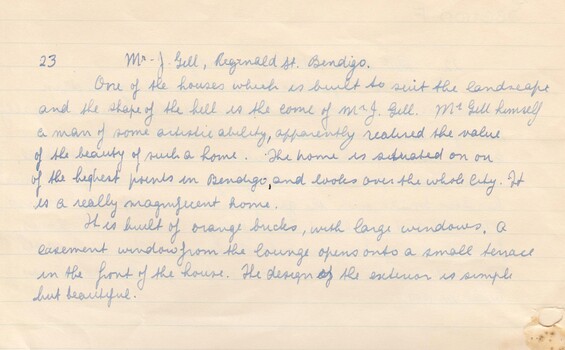 23 Mr. J. Gell, Reginald St. Bendigo.
One of the houses which is built to suit the landscape
and the shape of the hill is the come of Mr J. Gell. Mr Gell himself
a man of some artistic ability, apparently realized the value
of the beauty of such a home. The home is situated on on
of the highest points in Bendigo, and looks over the whole City. It
is a really magnificent home.
It is built of orange bricks, with large windows. A
casement window from the lounge opens onto a small terrace
in the front of the house. The design of the exterior is simple
but beautiful.